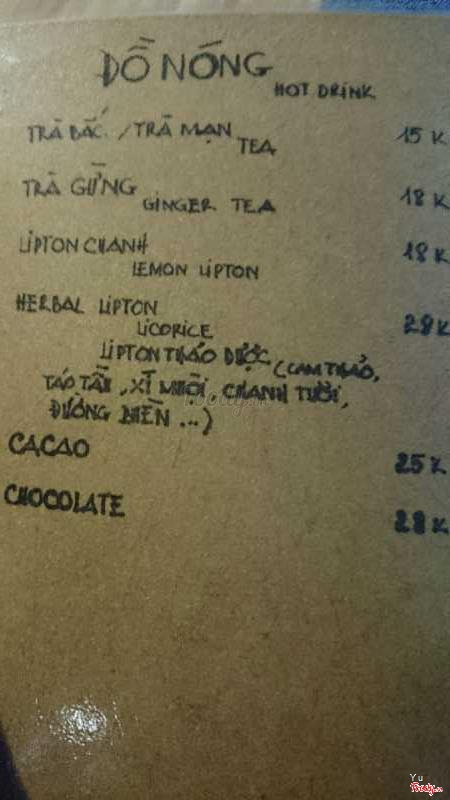 ĐỒ NÓNG
HOT DRINK
TRÀ BẮC / TRÀ MẠN 15 K
TEA
TRÀ GỪNG 18 K
GINGER TEA
LIPTON CHANH 18 K
LEMON LIPTON
HERBAL LIPTON 28 K
LICORICE
LIPTON THẢO DƯỢC (CAM THẢO,
TÁO TẦU, XÍ MUỘI, CHANH TƯƠI,
ĐƯỜNG BIÊN ...)
CACAO 25 K
CHOCOLATE 28 K
Yu
Foody.vn